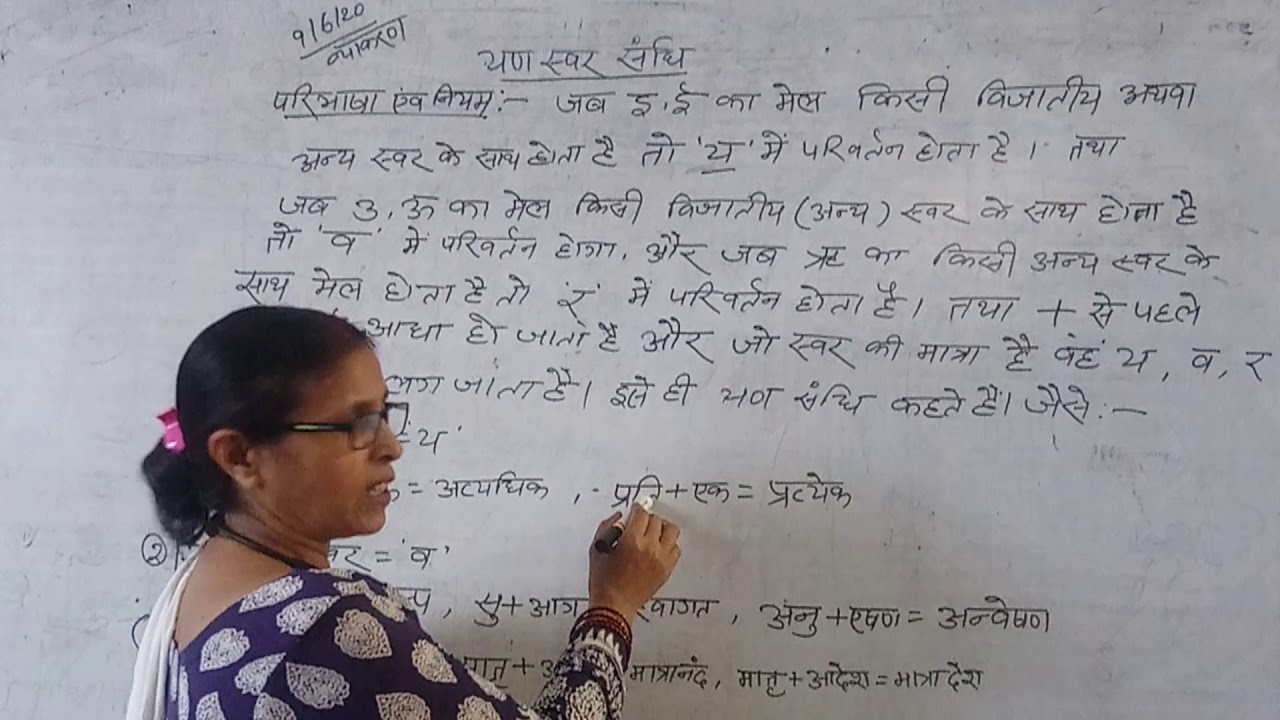 9/6/20
व्याकरण
यण स्वर संधि
परिभाषा एंव नियम:- जब इ,ई का मेल किसी विजातीय अथवा
अन्य स्वर के साथ होता है तो 'य' में परिवर्तन होता है। तथा
जब उ,ऊ का मेल किसी विजातीय (अन्य) स्वर के साथ होता है
तो 'व' में परिवर्तन होगा, और जब ऋ का किसी अन्य स्वर के
साथ मेल होता है तो 'र' में परिवर्तन होता है। तथा + से पहले
आधा हो जाता है और जो स्वर की मात्रा है वह य, व, र
लग जाता है। इसे ही यण संधि कहते हैं। जैसे:-
'य'
= अत्यधिक, प्रति+एक = प्रत्येक
② = 'व'
, सु+आग, अनु+एषण = अन्वेषण
मात्रानंद, मातृ+आदेश = मात्रादेश